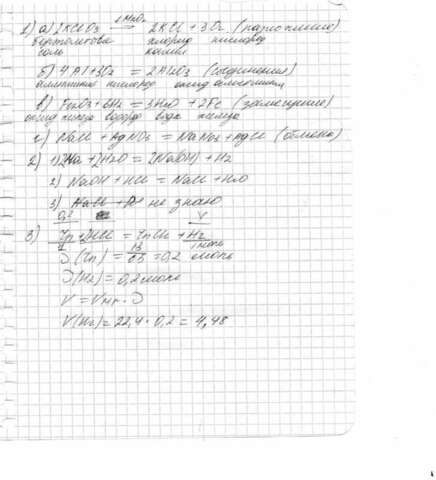 1) а) 2KClO3 = 2KCl + 3O2 (разложение)
бертолетова хлорид кислород
соль калия
б) 4Al + 3O2 = 2Al2O3 (соединения)
алюминий кислород оксид алюминия
в) Fe2O3 + 3H2 = 3H2O + 2Fe (замещение)
водород вода железо
г) NaCl + AgNO3 = NaNO3 + AgCl (обмена)
2) 1) 2Na + 2H2O = 2NaOH + H2
2) NaOH + HCl = NaCl + H2O
3) не знаю
0,2 V
3) Zn + 2HCl = ZnCl2 + H2
1 1 моль
ν(Zn) = 13/65 = 0,2 моль
ν(H2) = 0,2 моль
V = Vm · ν
V(H2) = 22,4 · 0,2 = 4,48